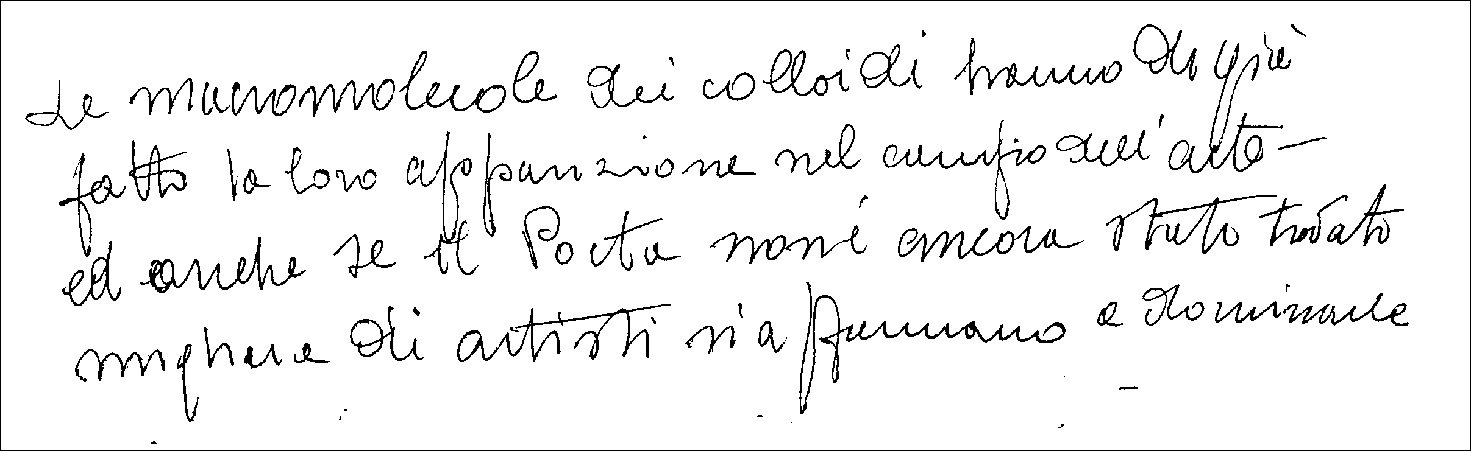 Le macromolecole dei colloidi hanno di già
fatto la loro apparizione nel campo dell'arte –
ed anche se il Poeta non è ancora stato trovato
migliaia di artisti si affannano a dominarle